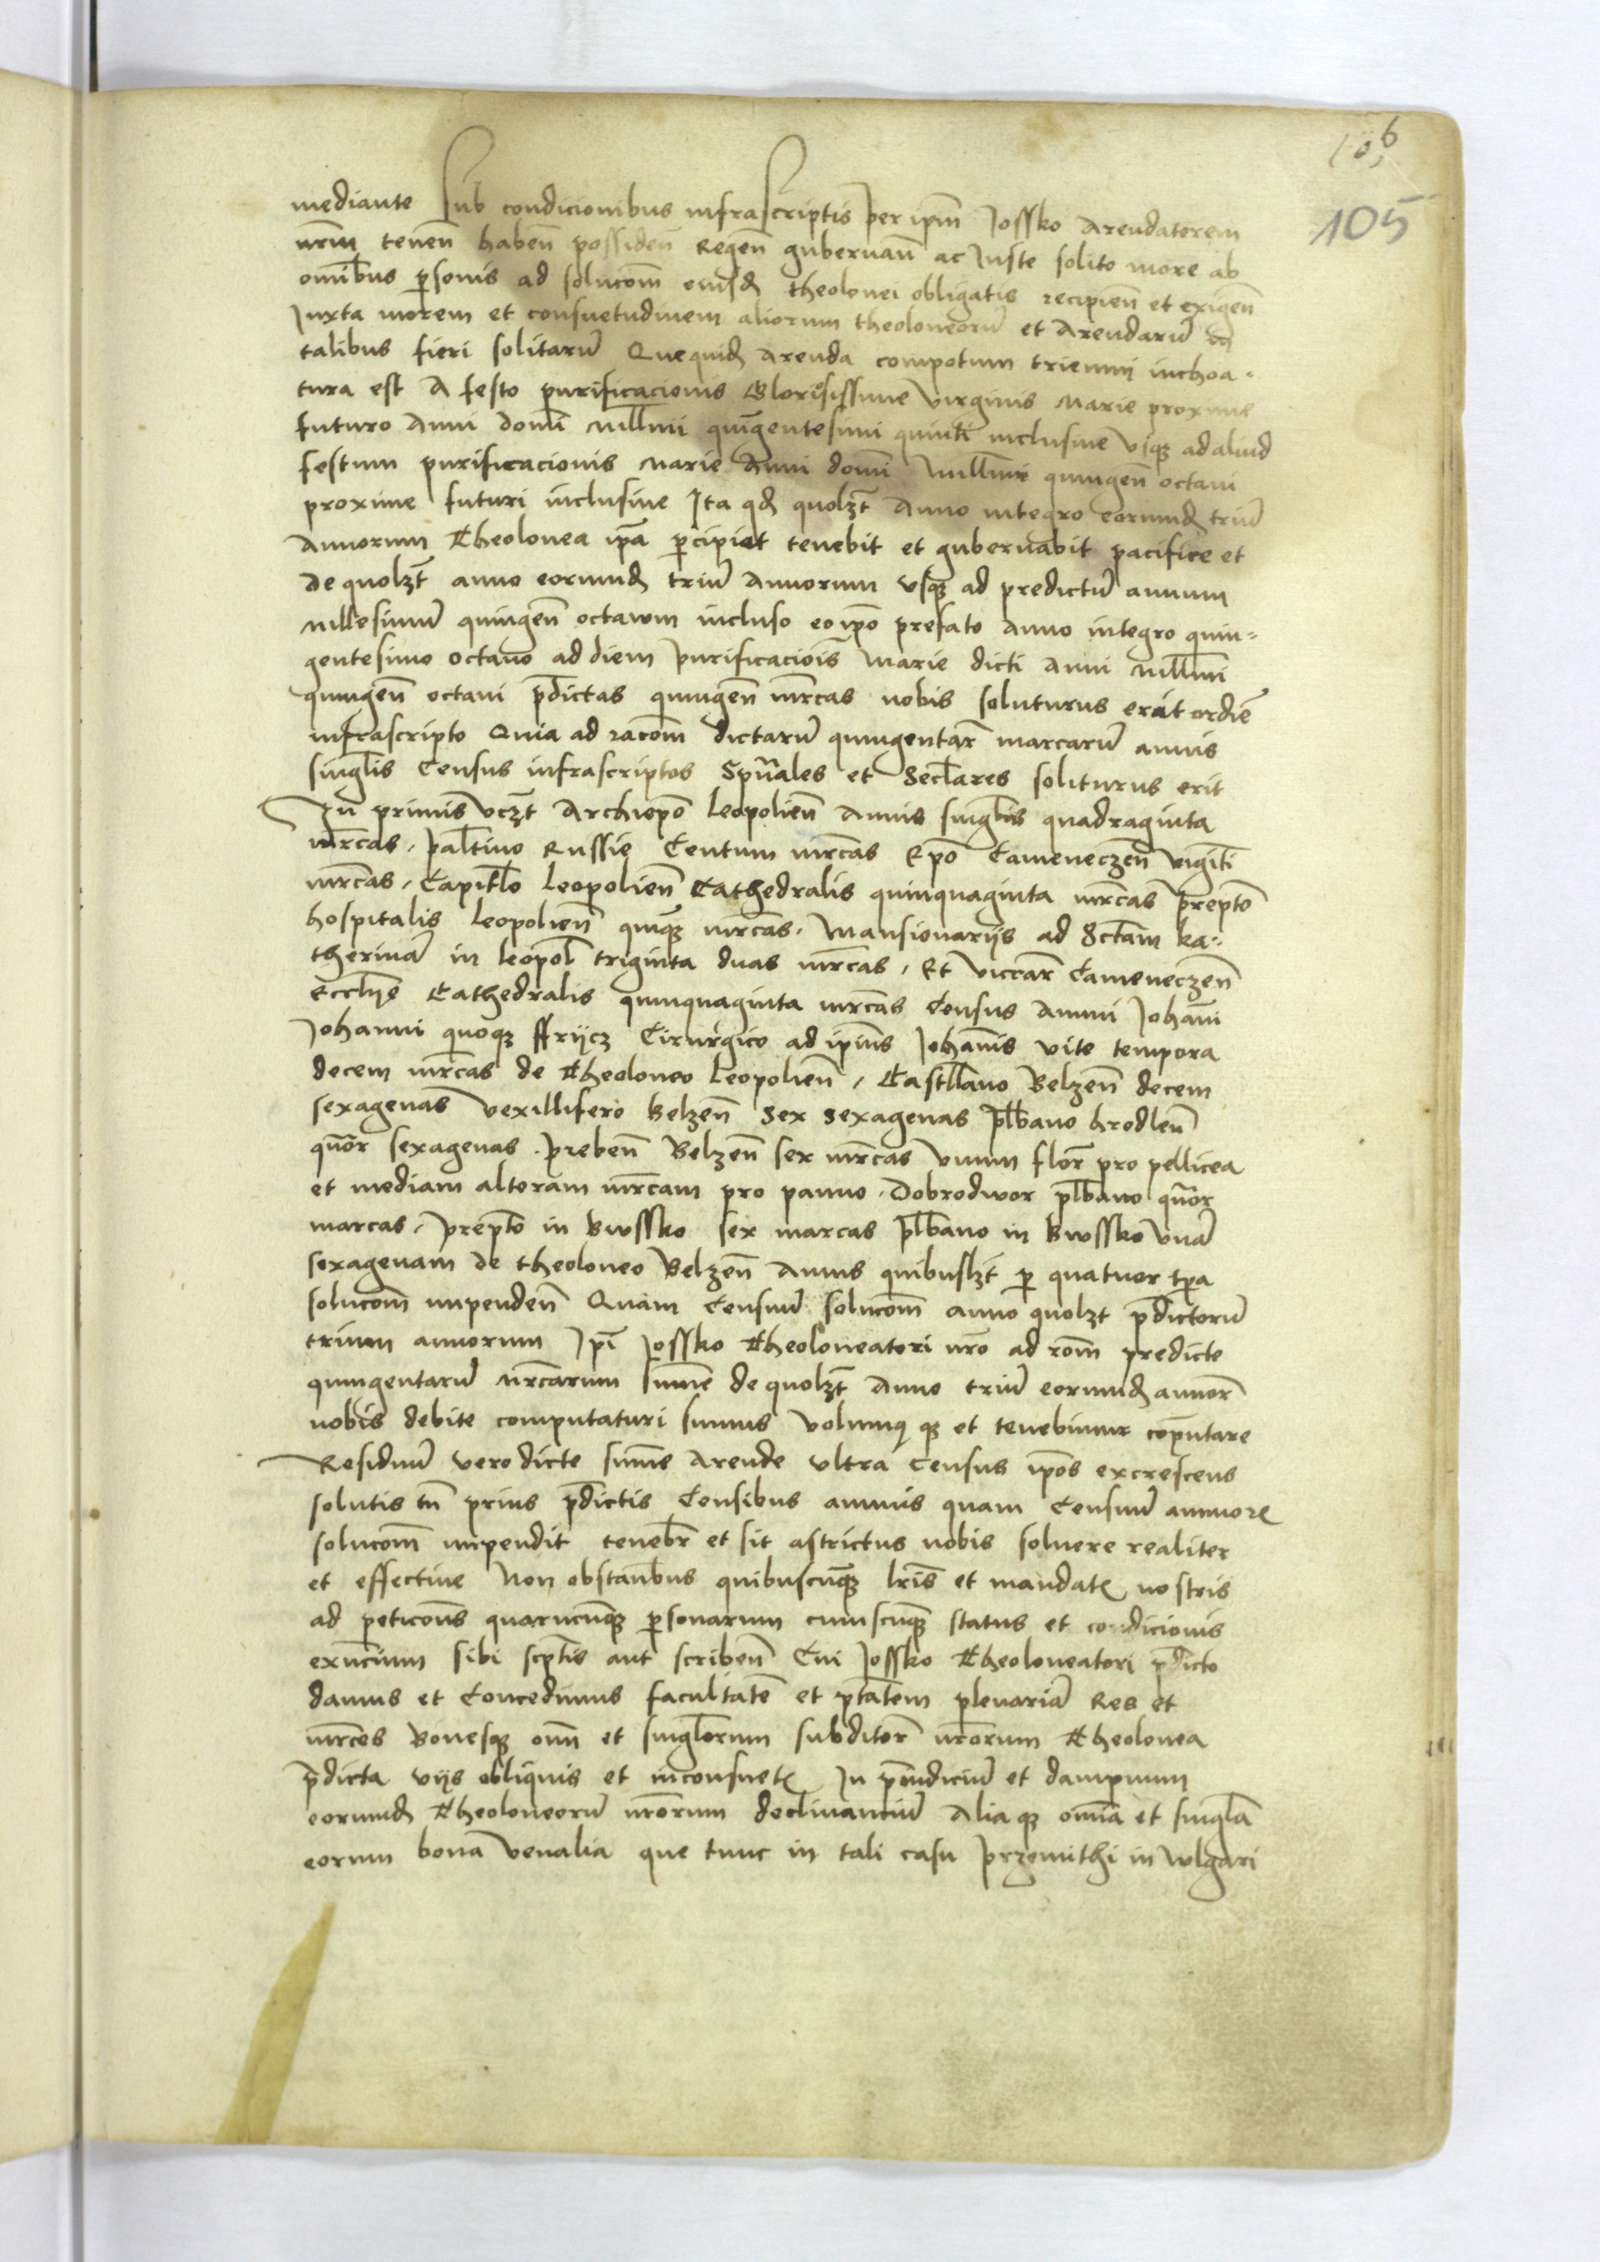 106
105
mediante sub condicionibus infrascriptis per ipm̄ Jossko Arendatorem
nr̄m teneñ habeñ possideñ Regeñ gubernañ ac Juste solito more ab
om̄ibus personis ad soluco͞m eiusd theolonei obligatis recipieñ et exigeñ
Juxta morem et consuetudinem aliorum theoloneorū et Arendarū
talibus fieri solitarū Quequid Arenda compotum triennii inchoa-
tura est A festo purificacionis Gloriosissime virginis Marie proxime
futuro Anni domī mill̄mi quīgentesimi quinti inclusiue vsqȝ ad aliud
festum purificacionis Marie Anni domī Mill̄mi quingeñ octaui
proxime futuri inclusiue Ita qd quolȝt Anno integro eorumd triū
Annorum Theolonea ip̄a percipiet tenebit et gubernabit pacifice et
de quolȝt anno eorumd triū Annorum vsqȝ ad predictū annum
Millesimū quingeñ octauum incluso eoip̄o prefato Anno integro quin-
gentesimo octauo ad diem purificaciois̄ Marie dicti Anni Mill̄mi
quingeñ octaui p̄dictas quingeñ mr̄cas nobis soluturus erit ordīe
infrascripto Quia ad raco͞m dictarū quingentar̄ marcarū annis
singl̄is Census infrascriptos Spūales et Secl̄ares soliturus erit
In primis vcȝt Archiep̄o Leopolieñ Annis singl̄is quadraginta
mr̄cas, pal̄tino Russie Centum mr̄cas Ep̄o Cameneczeñ viginti
mr̄cas, Capitl̄o Leopolieñ Cathedralis quinquaginta mr̄cas prep̄to
hospitalis Leopolieñ quīqȝ mr̄cas. Mansionarijs ad Sctam ka-
therinā in Leopol̄ triginta duas mr̄cas, Et viccar̄ Cameneczeñ
Eccl̄ije Cathedralis quinquaginta mr̄cas Census Annui Joha͞ni
Johanni quoqȝ ffrijcz Cirurgico ad ipīus Joha͞nis vite tempora
decem mr̄cas de Theoloneo Leopolieñ, Castl̄lano Belzeñ decem
sexagenas vexillifero Belzeñ Sex sexagenas pl̄bano hrodleñ
qūor sexagenas. prebeñ Belzeñ sex mr̄cas Vnum flor̄ pro pellicea
et mediam alteram mr̄cam pro panno. Dobrodwor pl̄bano qūor
marcas, prep̄to in Bwssko sex marcas pl̄bano in Bwssko vnā
sexagenam de theoloneo Belzeñ Annis quibuslȝt per quatuor tp̄a
soluco͞m impendeñ Quam Censuū soluco͞m anno quolȝt p̄dictorū
trium annorum Ip̄i Jossko Theoloneatori nr̄o ad ro͞m predicte
quingentarū mr̄carum sum̄e de quolȝt Anno triū eorumd annor̄
nobis debite computaturi sumus volumusqȝ et tenebimur cōputare
Residuū vero dicte sum̄e Arende vltra Census ip̄os excrescens
solutis tn̄ prius p̄dictis Censibus annuis quam Censuū annuorꝛ
soluco͞m impendit tenebr̄ et sit astrictus nobis soluere realiter
et effectiue Non obstantibus quibuscūqȝ lr̄is et mandatꝭ nostris
ad peticōns quarūcūqȝ personarum cuiuscūqȝ status et condicionis
exn̄cium sibi scp̄tis aut scribeñ Cui Jossko Theoloneatori p̄dicto
damus et Concedimus facultatē et ptātem plenariā Res et
mr̄ces Bouesqȝ om̄ et singl̄orum subditor̄ nr̄orum Theolonea
p̄dicta vijs obliquis et inconsuetꝭ In p̄iudiciū et dampnum
eorumd Theoloneorū nr̄orum declinanciū Aliaqȝ om̄ia et singl̄a
eorum bona venalia que tunc in tali casu przemithi in wlgari